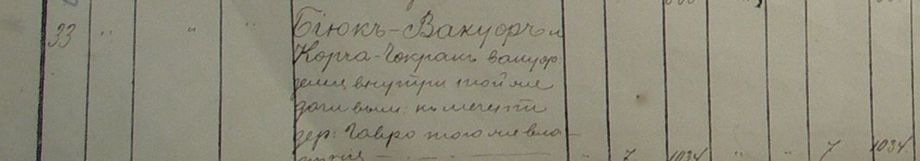 33 " " " Бiюкъ-Вакуфъ и
Корча-Чокракъ вакуф.
земл. внутри той же
дачи вым. къ мечети
дер. Гавро того же вла-
" 7 1034 " " 7 1034.